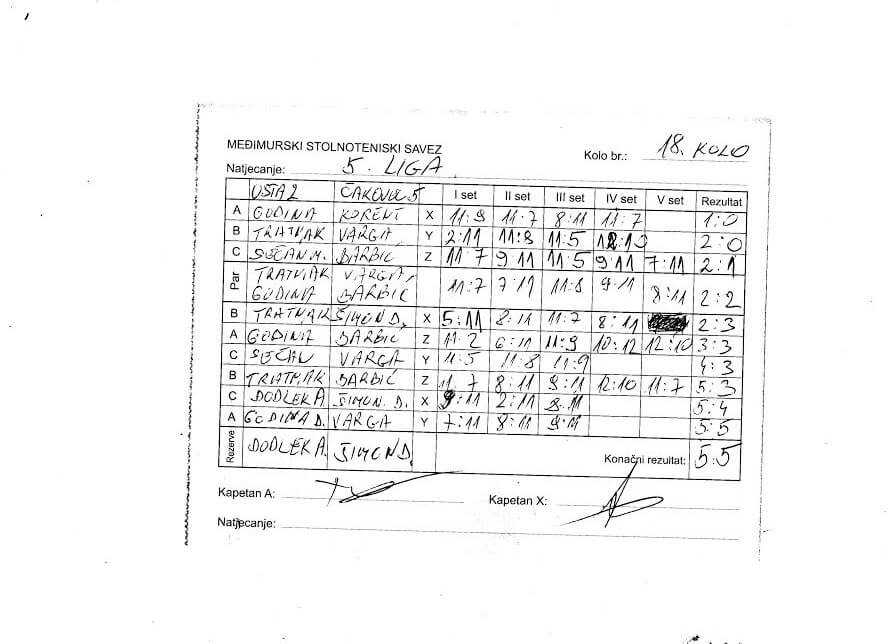 MEĐIMURSKI STOLNOTENISKI SAVEZ
Kolo br.: 18. KOLO
Natjecanje: 5. LIGA
USTA 2 ČAKOVEC 5 I set II set III set IV set V set Rezultat
A GODINA KORENT X 11:9 11:7 8:11 11:7 1:0
B TRATNJAK VARGA Y 2:11 11:8 11:5 12:10 2:0
C SEČAN M. BARBIĆ Z 11 7 9 11 11 5 9:11 7:11 2:1
Par TRATNJAK VARGA,
GODINA BARBIĆ 11:7 7:11 11:8 9:11 8:11 2:2
B TRATNJAK ŠIMON D. X 5:11 8:11 11:7 8:11 2:3
A GODINA BARBIĆ Z 11 2 6:11 11:9 10:12 12:10 3:3
C SEČAN VARGA Y 11:5 11:8 11:9 4:3
B TRATNJAK BARBIĆ Z 11.7 8:11 9:11 12:10 11:7 5:3
C DODLEK A ŠIMON. D. X 9:11 2:11 8.11 5:4
A GODINA D. VARGA Y 7:11 8:11 9:11 5:5
Rezerve DODLEK A. ŠIMON D. Konačni rezultat: 5:5
Kapetan A:
Kapetan X:
Natjecanje: